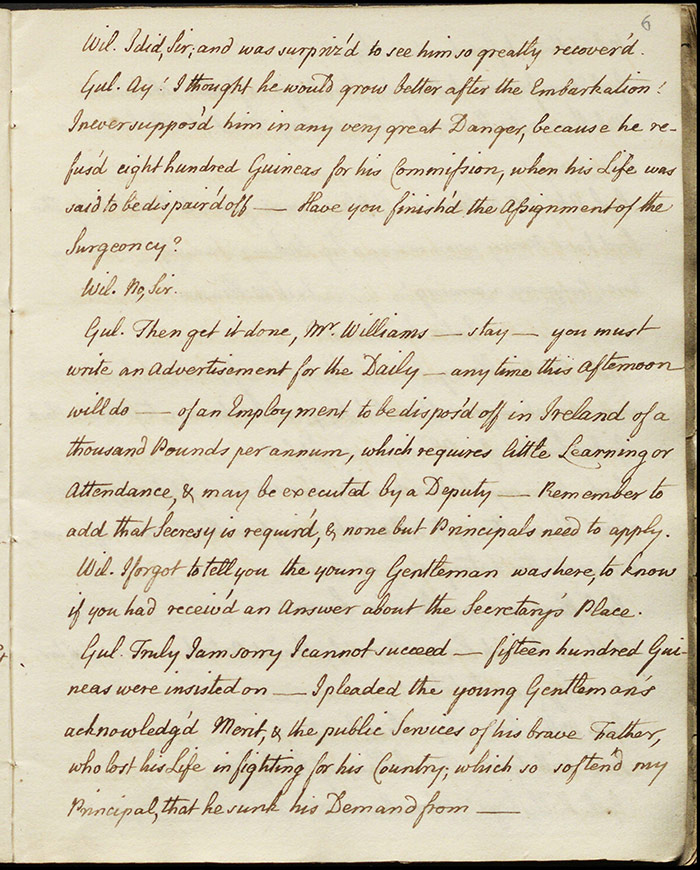 6
Wil. I did, Sir; and was surpriz'd to see him so greatly recover'd.
Gul. Ay! I thought he would grow better after the Embarkation!
I never suppos'd him in any very great Danger, because he re-
fus'd eight hundred Guineas for his Commission, when his Life was
said to be dispair'd off — Have you finish'd the Assignment of the
Surgeoncy?
Wil. No, Sir.
Gul. Then get it done, Mr. Williams — stay — you must
write an Advertisement for the Daily — any time this Afternoon
will do — of an Employment to be dispos'd off in Ireland of a
thousand Pounds per annum, which requires little Learning or
Attendance, & may be executed by a Deputy — Remember to
add that Secresy is requir'd, & none but Principals need to apply.
Wil. I forgot to tell you the young Gentleman was here, to know
if you had receiv'd an Answer about the Secretary's Place.
Gul. Truly I am sorry I cannot succeed — fifteen hundred Gui-
neas were insisted on — I pleaded the young Gentleman's
acknowledg'd Merit, & the public Services of his brave Father,
who lost his Life in fighting for his Country; which so soften'd my
Principal, that he sunk his Demand from —